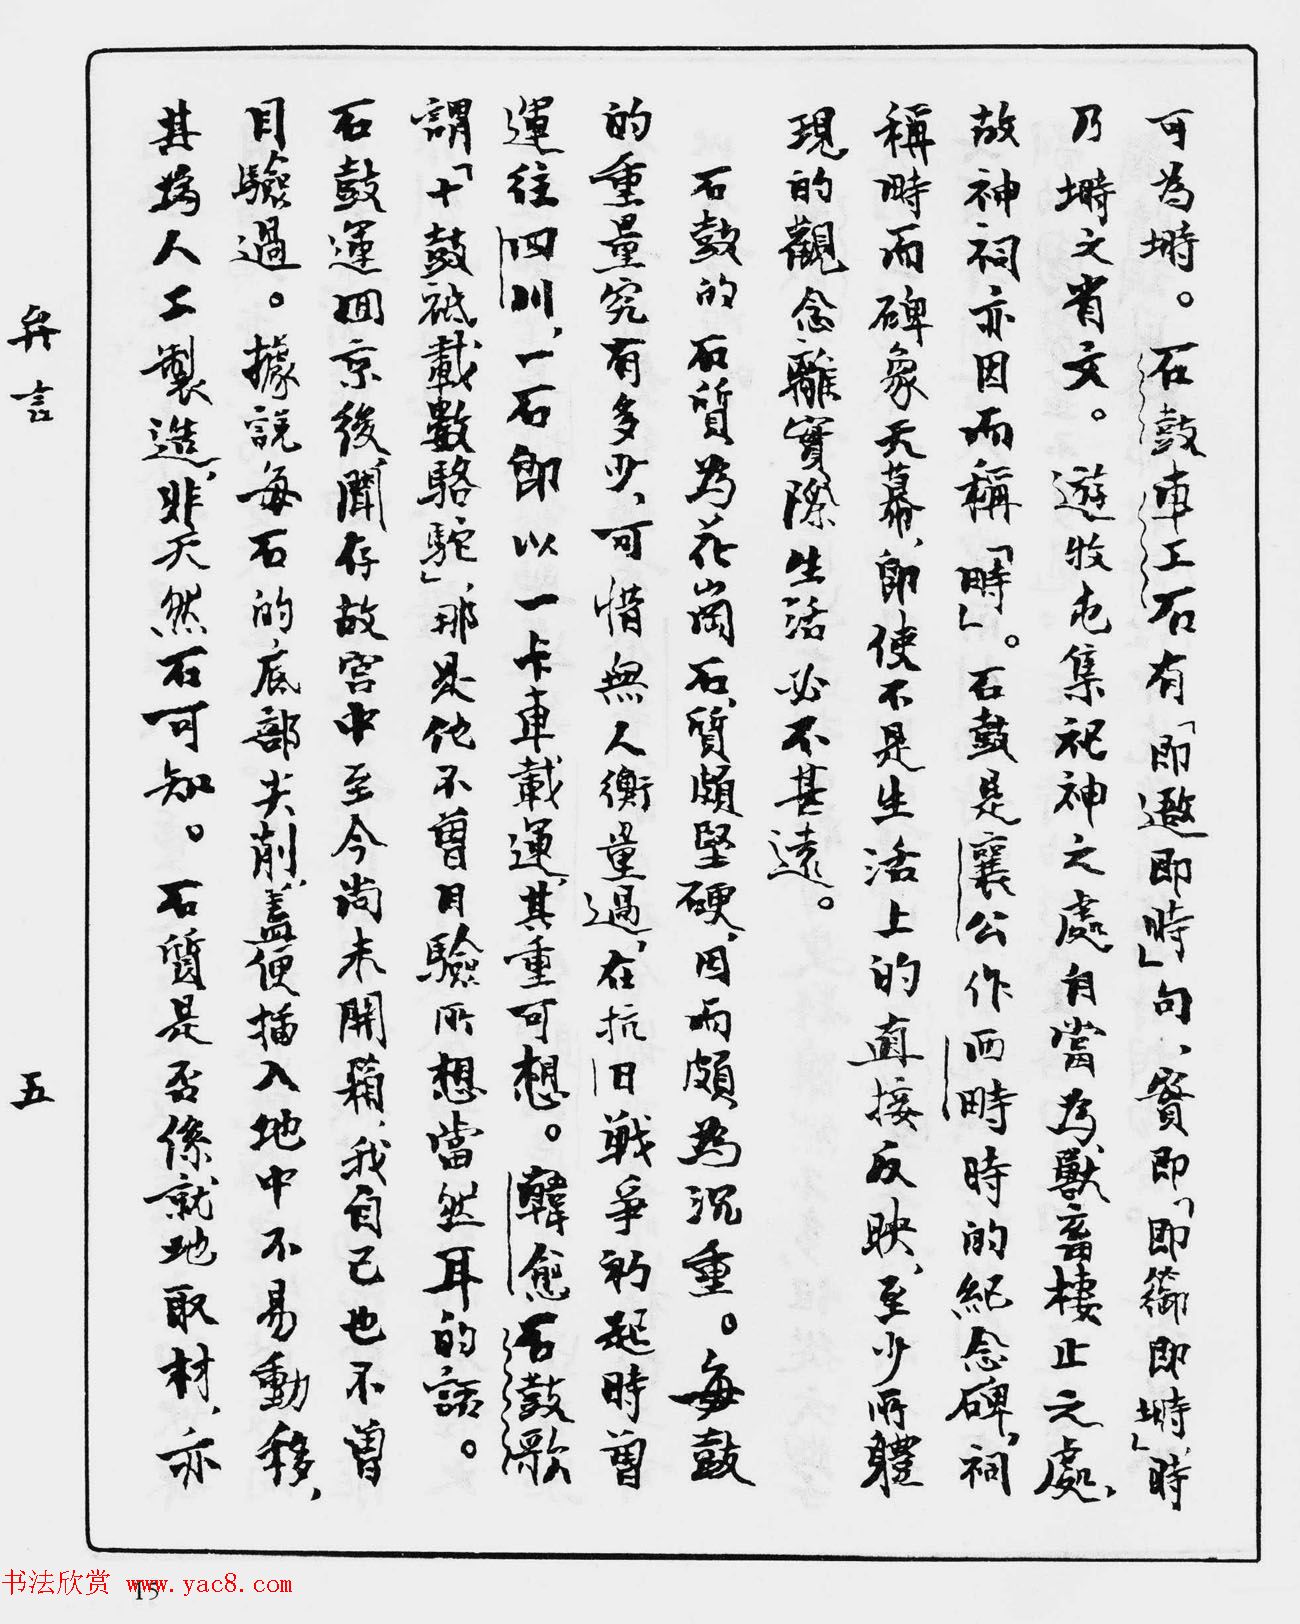 可為塒。石鼓車工石有「即邀即時」句、實即「即禦即塒」,時
乃塒之省文。遊牧屯集祀神之處自當為獸畜棲止之處,
故神祠亦因而稱「畤」。石鼓是襄公作西畤時的紀念碑,祠
稱畤而碑象天幕,即使不是生活上的直接反映,至少所體
現的觀念離實際生活必不甚遠。
石鼓的石質為花崗石,質頗堅硬,因而頗為沉重。每鼓
的重量究有多少,可惜無人衡量過,在抗日戰爭初起時曾
運往四川,一石即以一卡車載運,其重可想。韓愈石鼓歌
謂「十鼓祗載數駱駝」,那是他不曾目驗所想當然耳的話。
石鼓運回京後,聞存故宮中至今尚未開箱,我自己也不曾
目驗過。據説每石的底部尖削,蓋便插入地中不易動移,
其為人工製造,非天然石可知。石質是否係就地取材,亦
弁言
五
15
书法欣赏 www.yac8.com